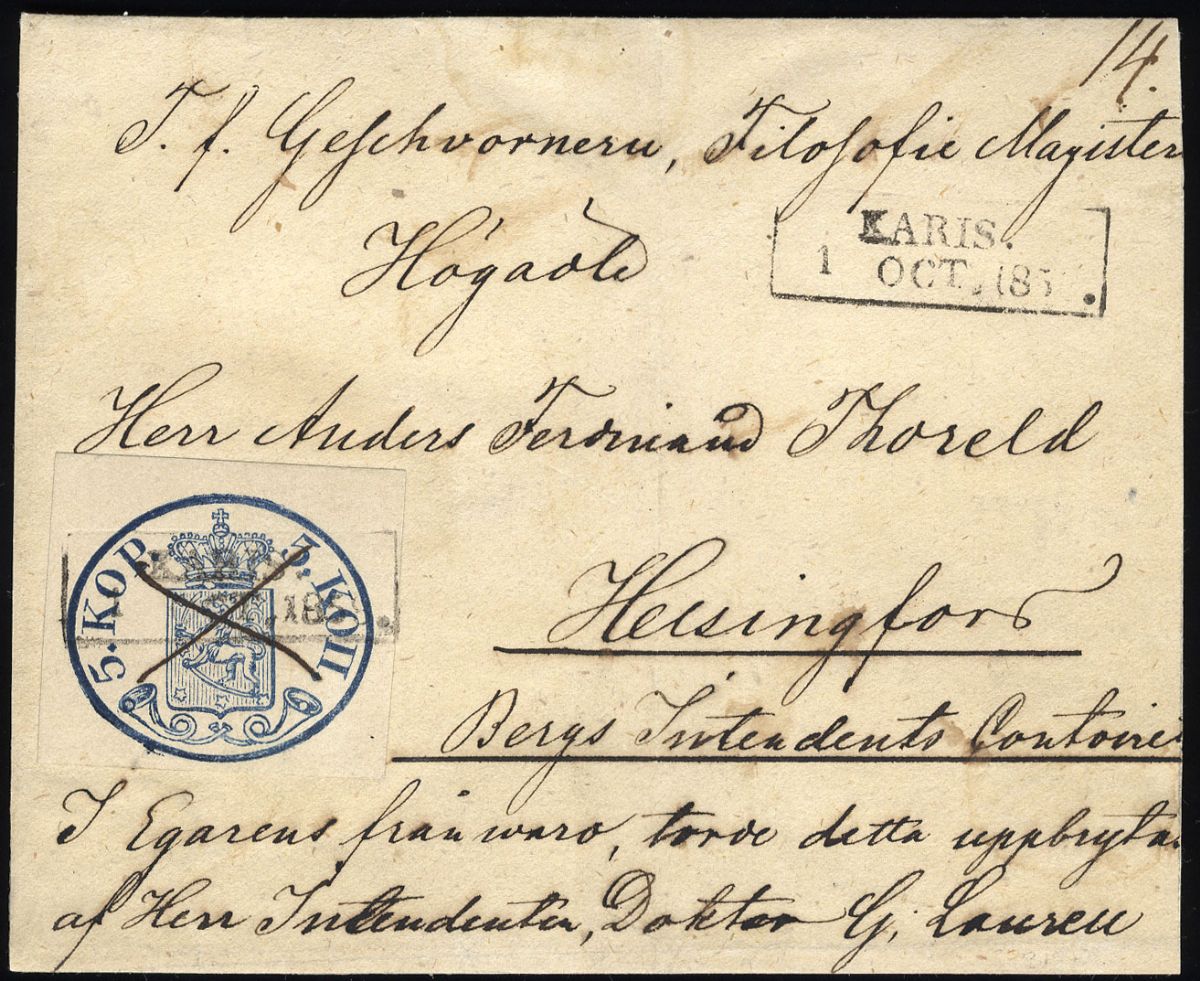 14.
T. f. Geschvornern, Filosofie Magistern
Högädle
KARIS.
1 OCT. 185
Herr Anders Ferdinand Thoreld
5. KOP. 5. КОП
KARIS.
18
Helsingfors
Bergs Intendents Contoiret
I Egarens frånwaro, torde detta uppbrytas
af Herr Intendenten, Doktor G. Lauren